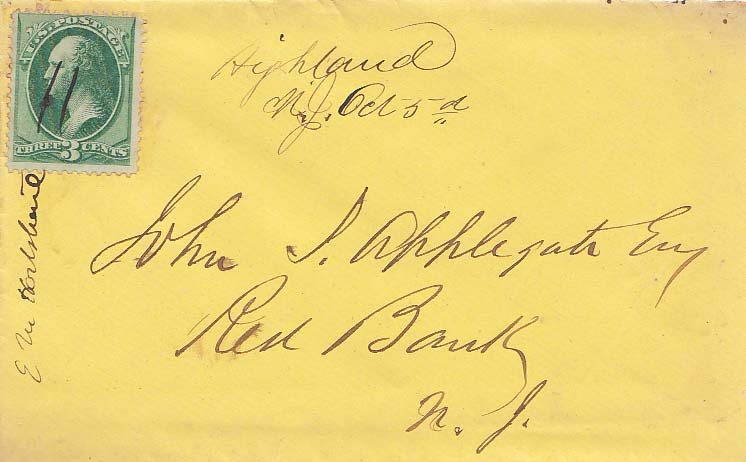 U.S. POSTAGE.
THREE 3 CENTS
Highland
N.J. Oct 5 d
John S. Applegate Esq
Red Bank
N. J.
E W